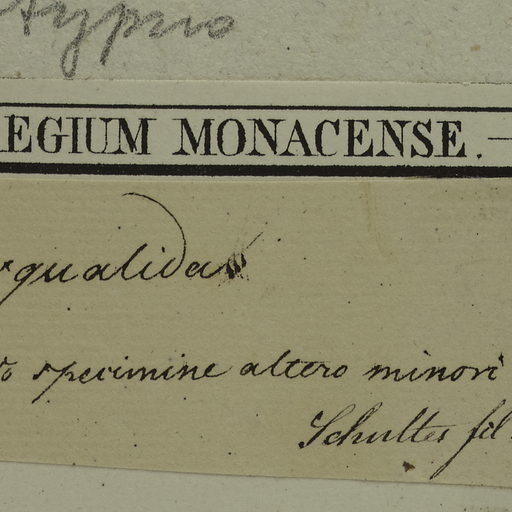 typus
EGIUM MONACENSE.—
squalida
specimine altero minori
Schultes fil.